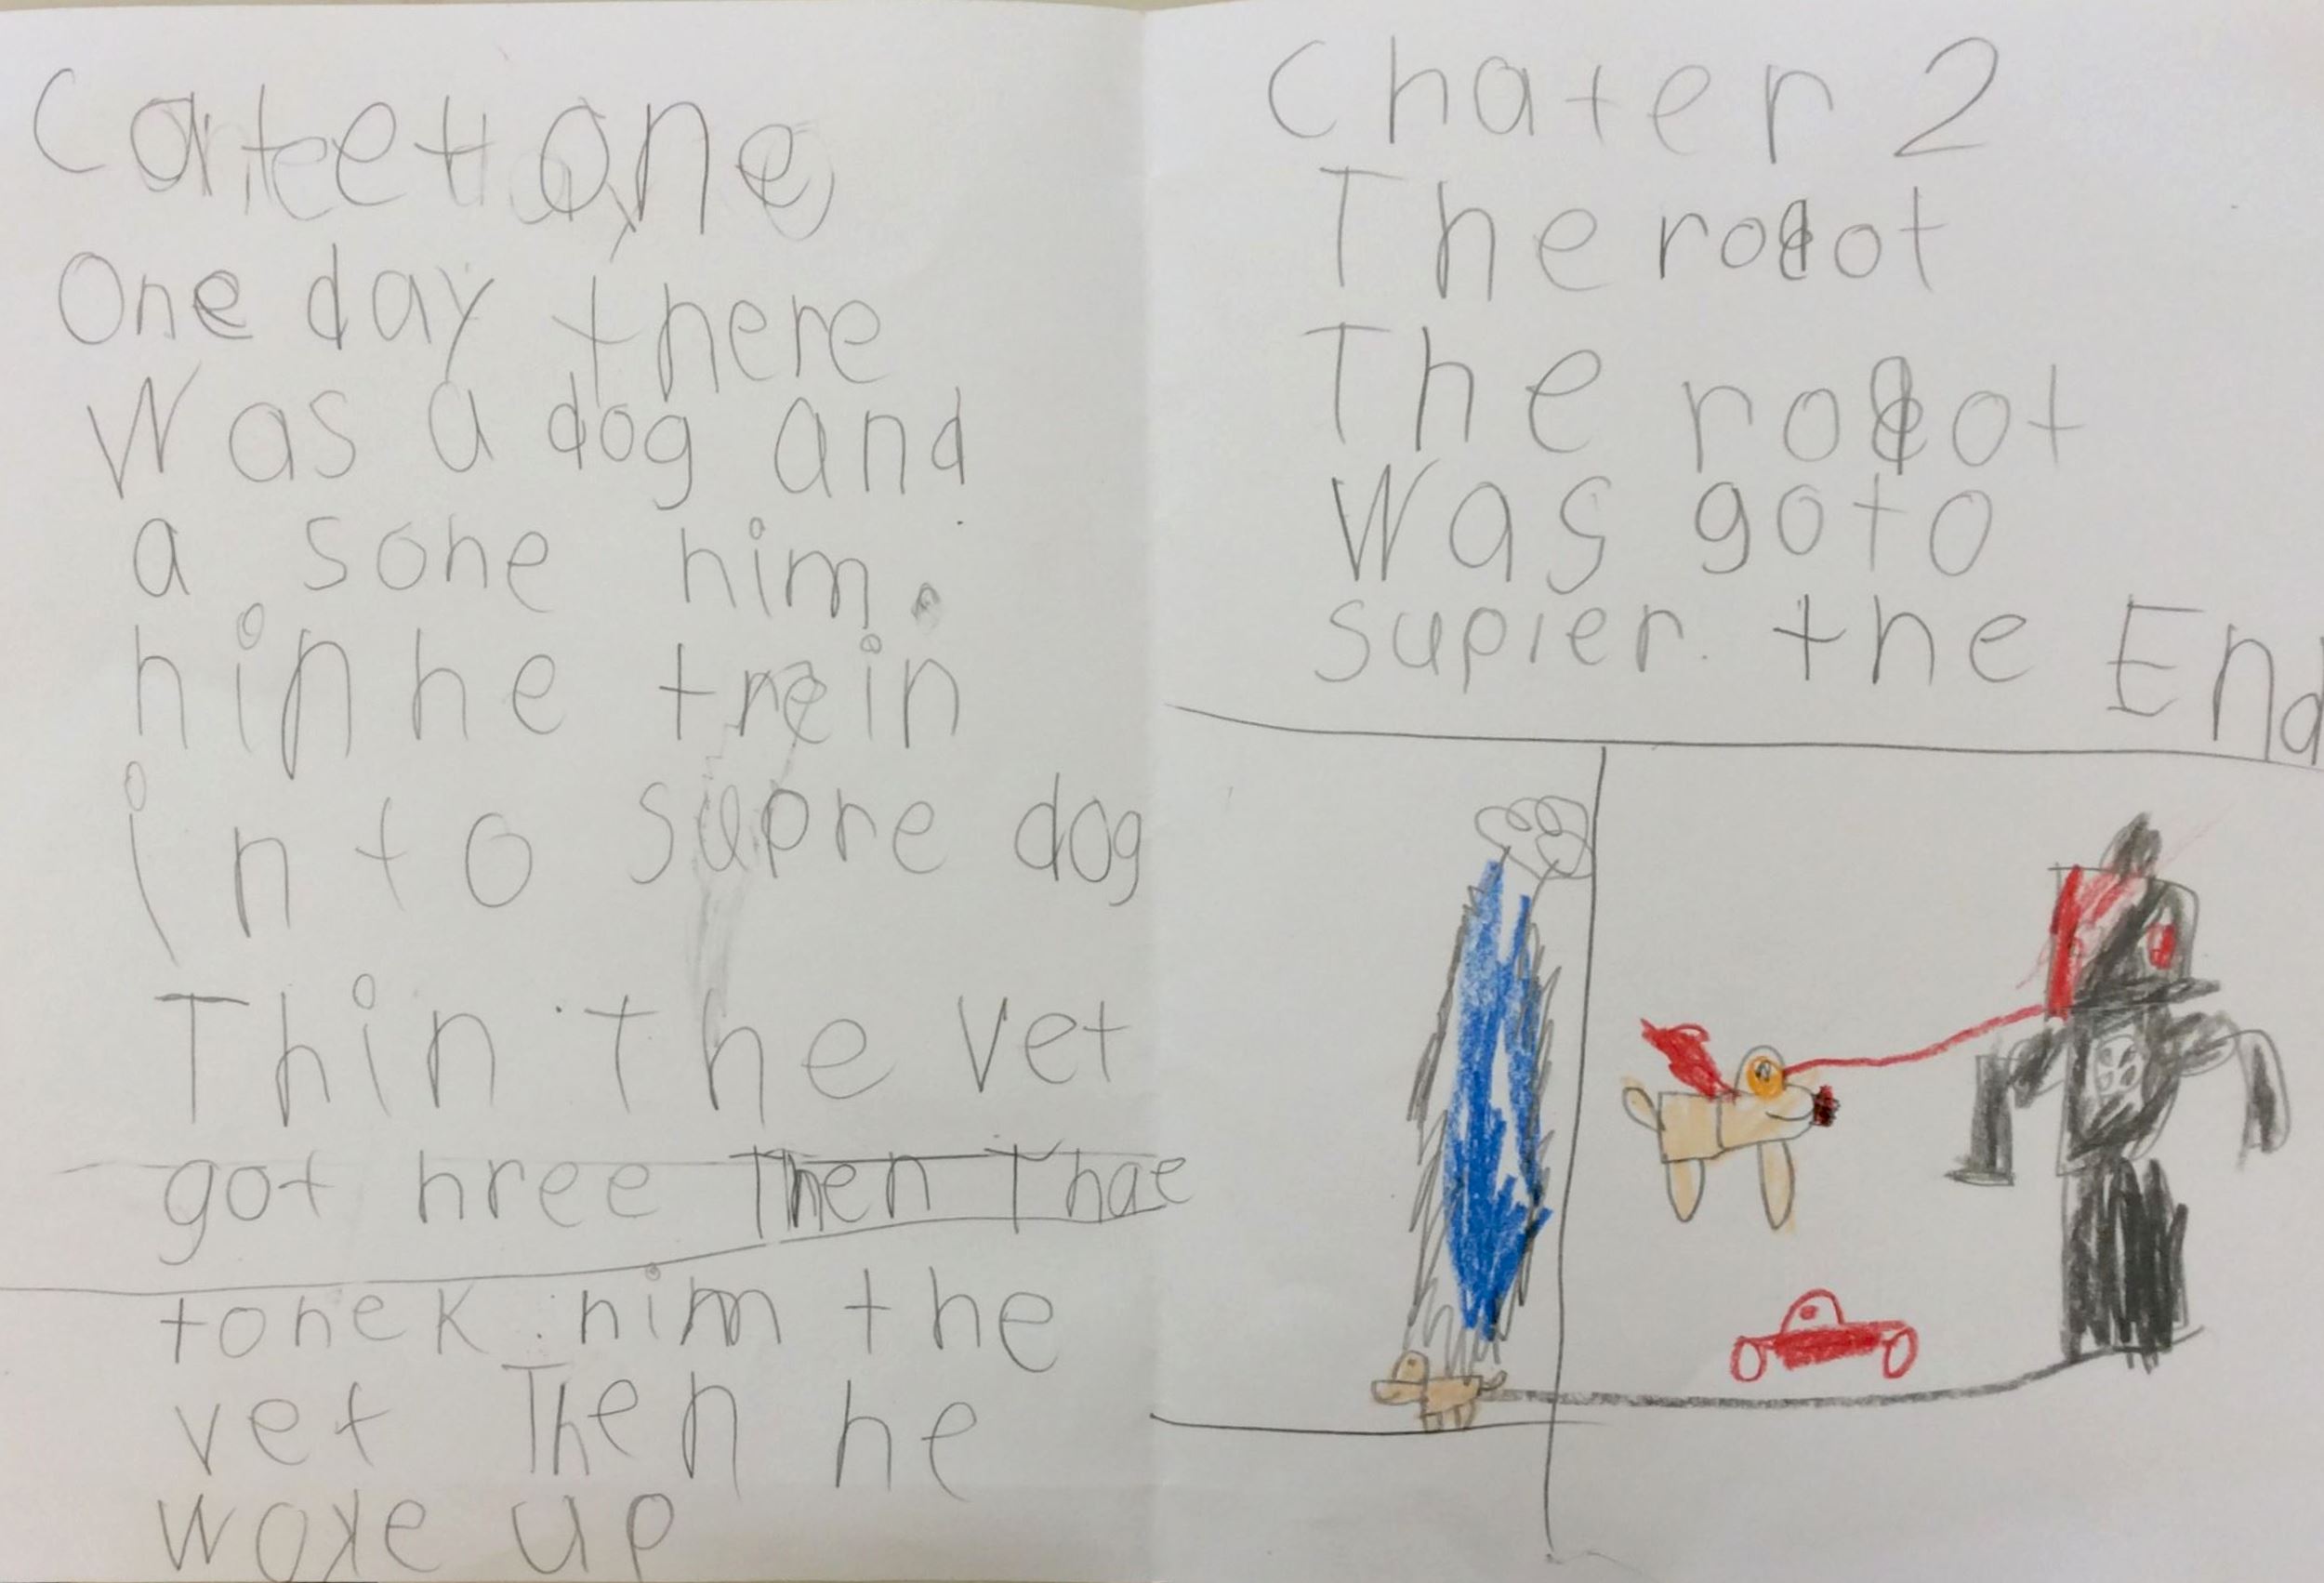 Carteet one
One day there
Was a dog and
a sohe him.
hinhe trein
into supre dog
Thin the vet
got hree Then Thae
tohek him the
vet Then he
woke up
Chater 2
The robot
The robot
Was goto
supier. the End